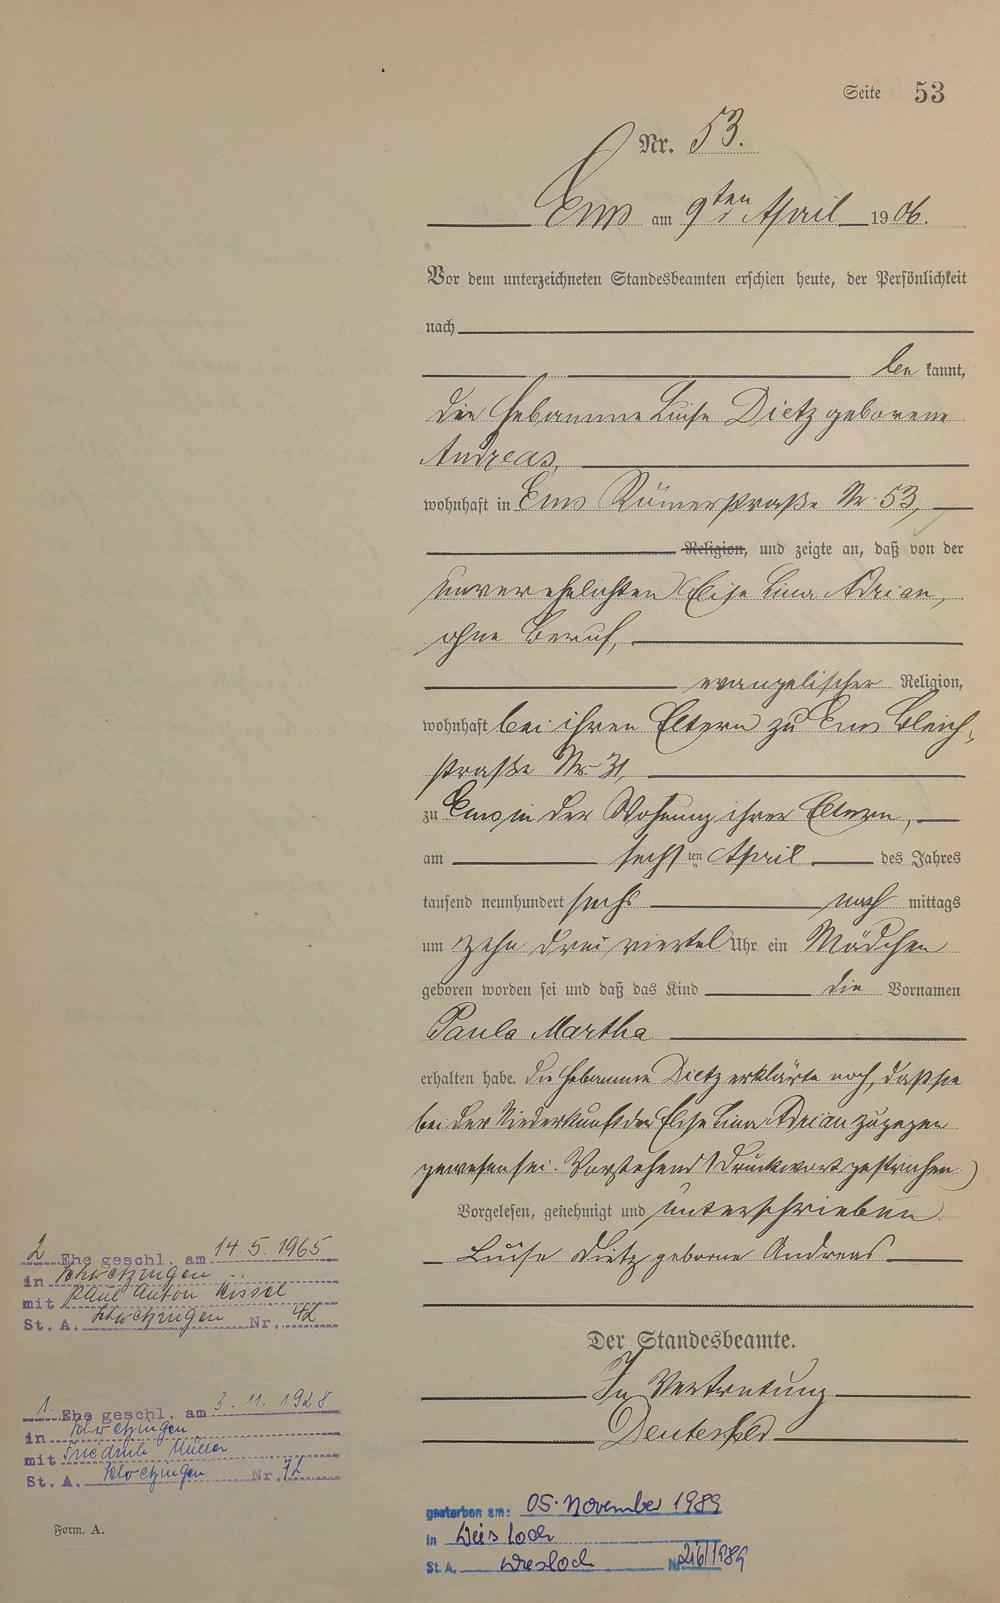 Seite 53
Nr. 53.
Ems am 9ten April 1906.
Vor dem unterzeichneten Standesbeamten erschien heute, der Persönlichkeit
nach
be kannt,
die Hebamme Luise Dietz geborene
Andreas,
wohnhaft in Ems Römerstraße Nr. 53,
Religion, und zeigte an, daß von der
unverehelichten Elise Lina Adrian,
ohne Beruf,
evangelischer Religion,
wohnhaft bei ihren Eltern zu Ems Bleich-
straße Nr. 31,
zu Ems in der Wohnung ihrer Eltern,
am sechsten April des Jahres
tausend neunhundert sechs nach mittags
um zehn drei viertel Uhr ein Mädchen
geboren worden sei und daß das Kind die Vornamen
Paula Martha
erhalten habe. Die Hebamme Dietz erklärte noch, daß sie
bei der Niederkunft der Elise Lina Adrian zugegen
gewesen sei. Vorstehend 1 Druckwort gestrichen.
Vorgelesen, genehmigt und unterschrieben
Luise Dietz geborne Andreas
Der Standesbeamte.
In Vertretung
2 Ehe geschl. am 14.5.1965
in Schwetzingen
mit Paul Anton
St. A. Schwetzingen Nr. 42
1. Ehe geschl. am 3.11.1928
in Schwetzingen
mit Friedrich Müller
St. A. Schwetzingen Nr. 72
Form. A.
gestorben am: 05. November 1989
in Wiesloch
St. A. Wiesloch Nr. 216/1989